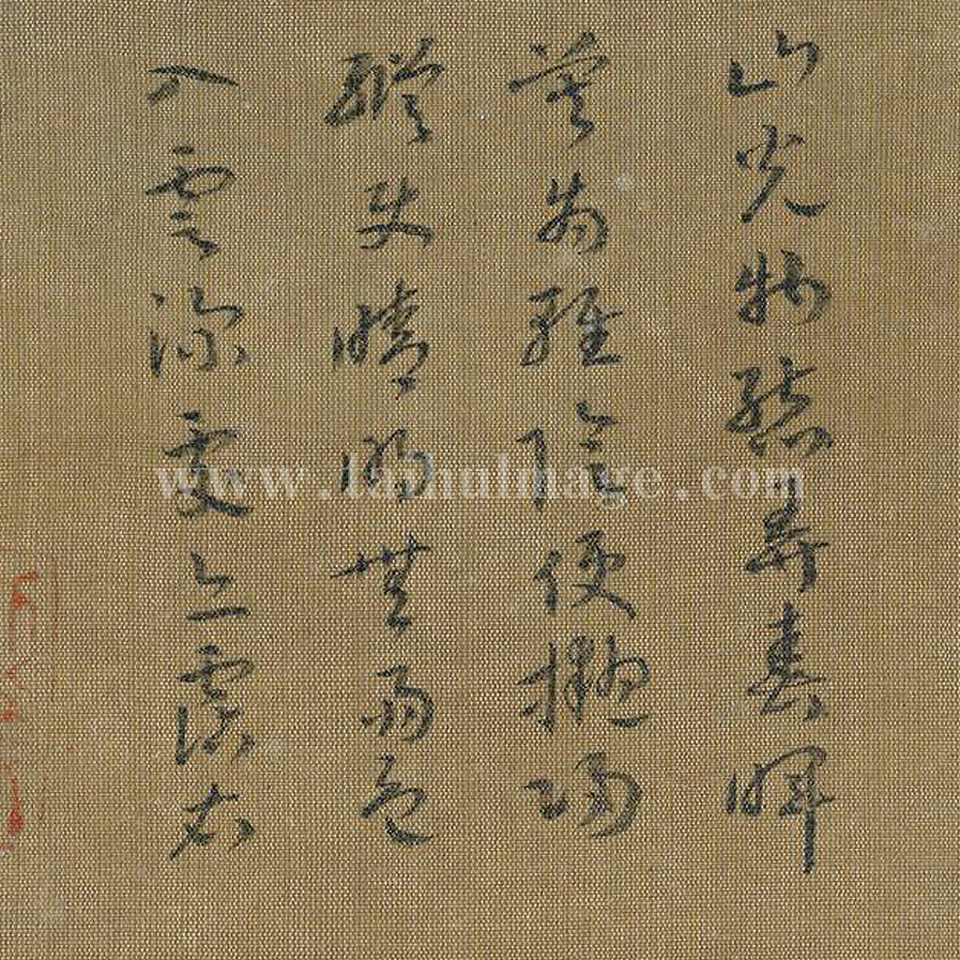 山光物態弄春暉
莫為輕陰便擬歸
縱使晴明無雨色
入雲深處亦霑衣